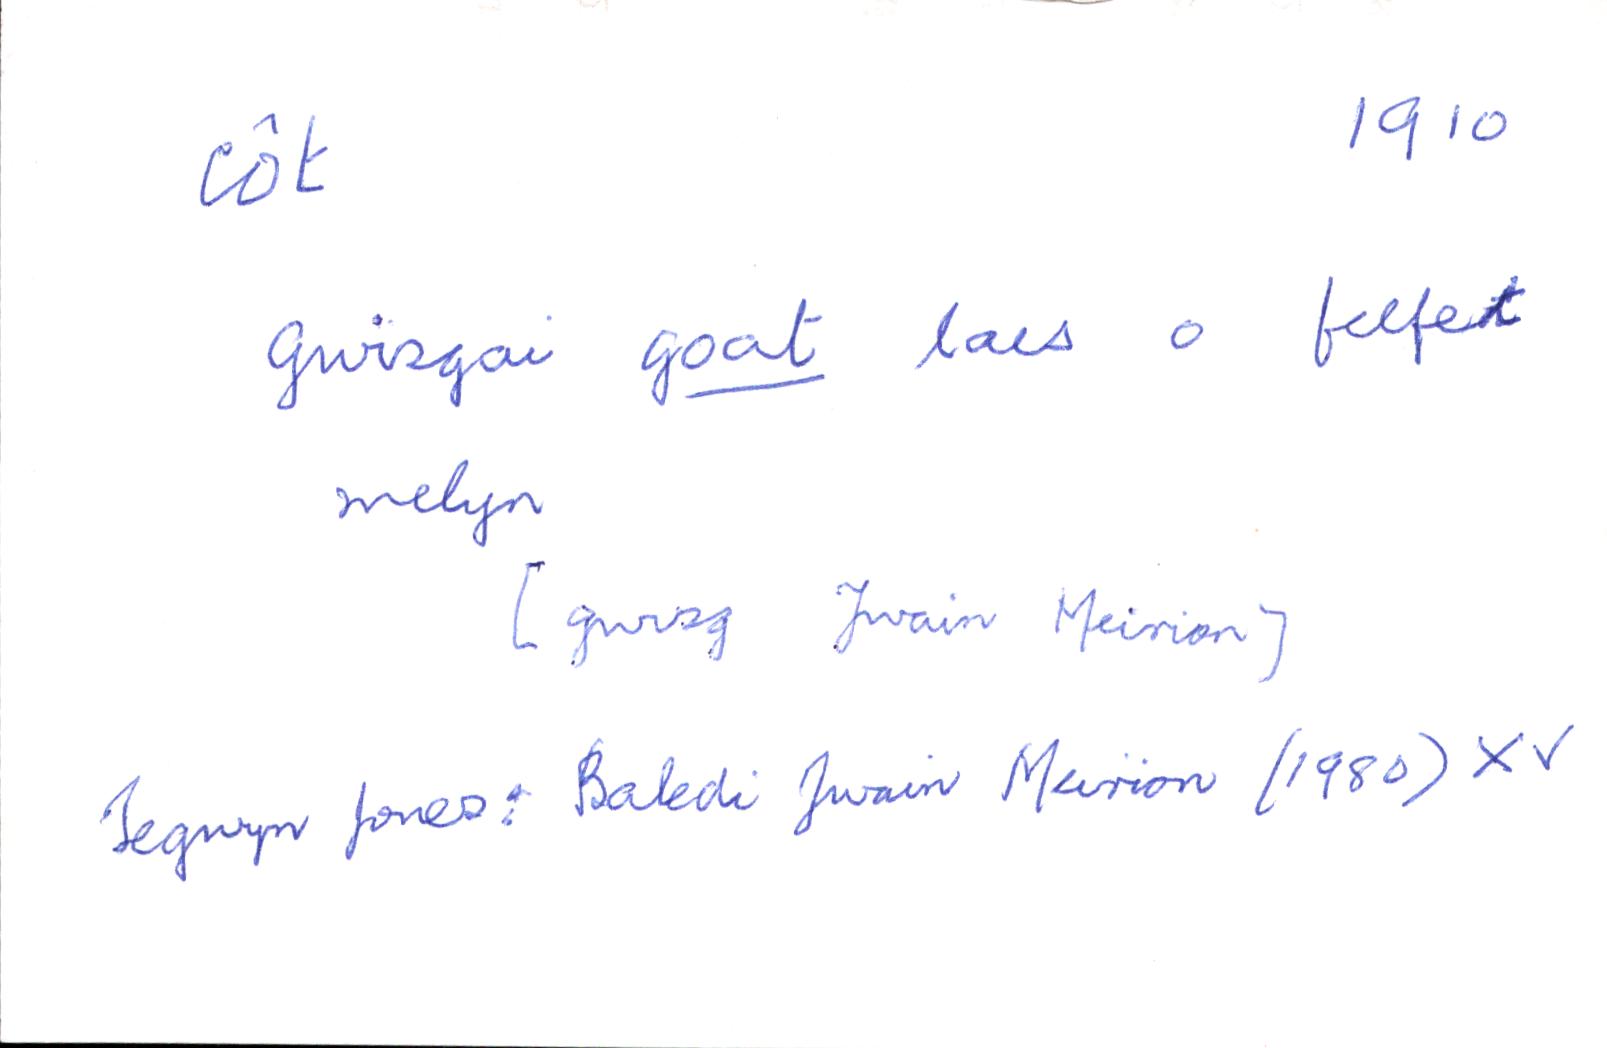 côt 1910
Gwisgai goat laes o felfet
melyn
[gwisg Jwain Meirion]
Tegwyn Jones: Baledi Jwain Meirion (1980) XV